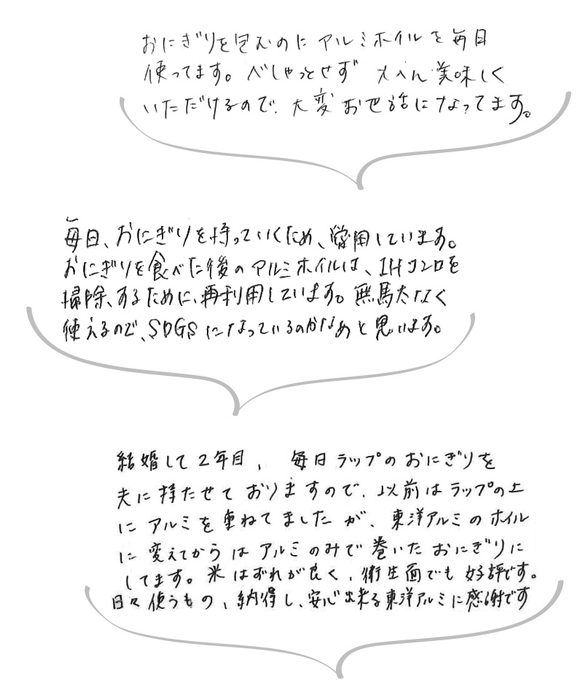 おにぎりを包むのにアルミホイルを毎日
使ってます。べしゃっとせず 大へん美味しく
いただけるので、大変お世話になってます。
毎日、おにぎりを持っていくため、愛用しています。
おにぎりを食べた後のアルミホイルは、IHコンロを
掃除、するために、再利用しています。無馬太なく
使えるので、SDGSになっているのかなあと思います。
結婚して2年目、毎日ラップのおにぎりを
夫に持たせておりますので、以前はラップの上
にアルミを重ねてましたが、東洋アルミのホイル
に変えてからはアルミのみで巻いたおにぎりに
してます。米はずれが良く、衛生面でも好評です。
日々使うもの、納得し、安心出来る東洋アルミに感謝です